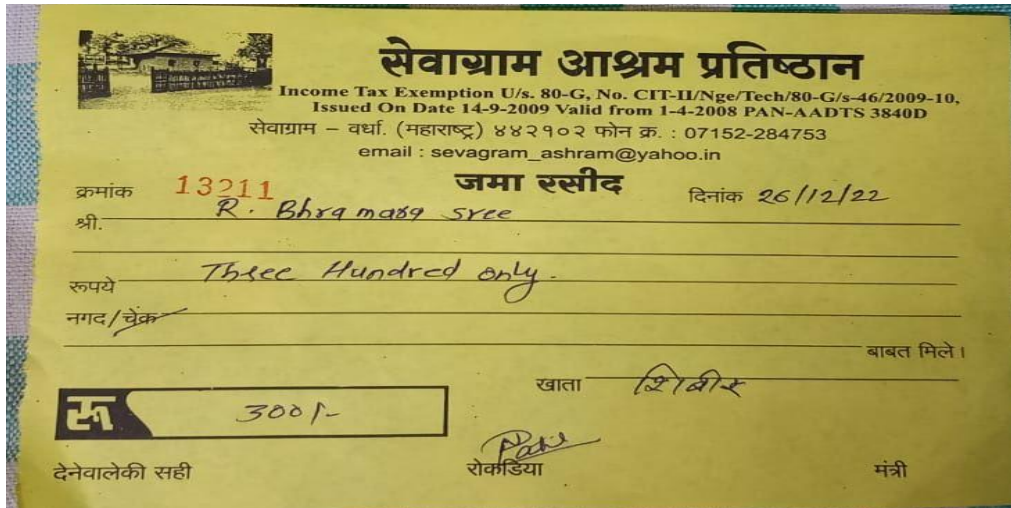 सेवाग्राम आश्रम प्रतिष्ठान
Income Tax Exemption U/s. 80-G, No. CIT-II/Nge/Tech/80-G/s-46/2009-10,
Issued On Date 14-9-2009 Valid from 1-4-2008 PAN-AADTS 3840D
सेवाग्राम – वर्धा. (महाराष्ट्र) ४४२१०२ फोन क्र. : 07152-284753
email : sevagram_ashram@yahoo.in
जमा रसीद
क्रमांक 13211 दिनांक 26/12/22
श्री. R. Bhramara sree
रूपये Three Hundred only.
नगद/चेक
बाबत मिले।
खाता शिबीर
रू 300/-
देनेवालेकी सही रोकडिया मंत्री